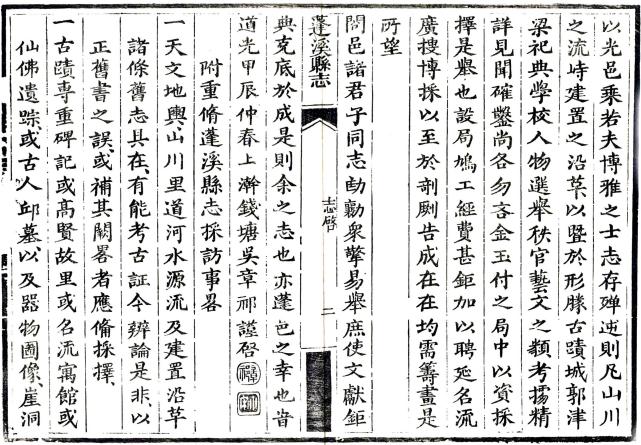 以光邑乘若夫博雅之士志存殫述則凡山川
之流峙建置之沿革以暨於形勝古蹟城郭津
梁祀典學校人物選舉秩官藝文之類考據精
詳見聞確鑿尚各勿吝金玉付之局中以資採
擇是舉也設局鳩工經費甚鉅加以聘延名流
廣搜博採以至於剞劂告成在在均需籌畫是
所望
閤邑諸君子同志勷勸衆擎易舉庶使文獻鉅
蓬溪縣志
志啓
二
典克底於成是則余之志也亦蓬邑之幸也旹
道光甲辰仲春上澣錢塘吳章祁謹啓
附重脩蓬溪縣志採訪事畧
一天文地輿山川里道河水源流及建置沿革
諸條舊志具在有能考古証今辨論是非以
正舊書之誤或補其闕畧者應脩採擇
一古蹟專重碑記或高賢故里或名流寓館或
仙佛遺踪或古人邱墓以及器物圖像崖洞